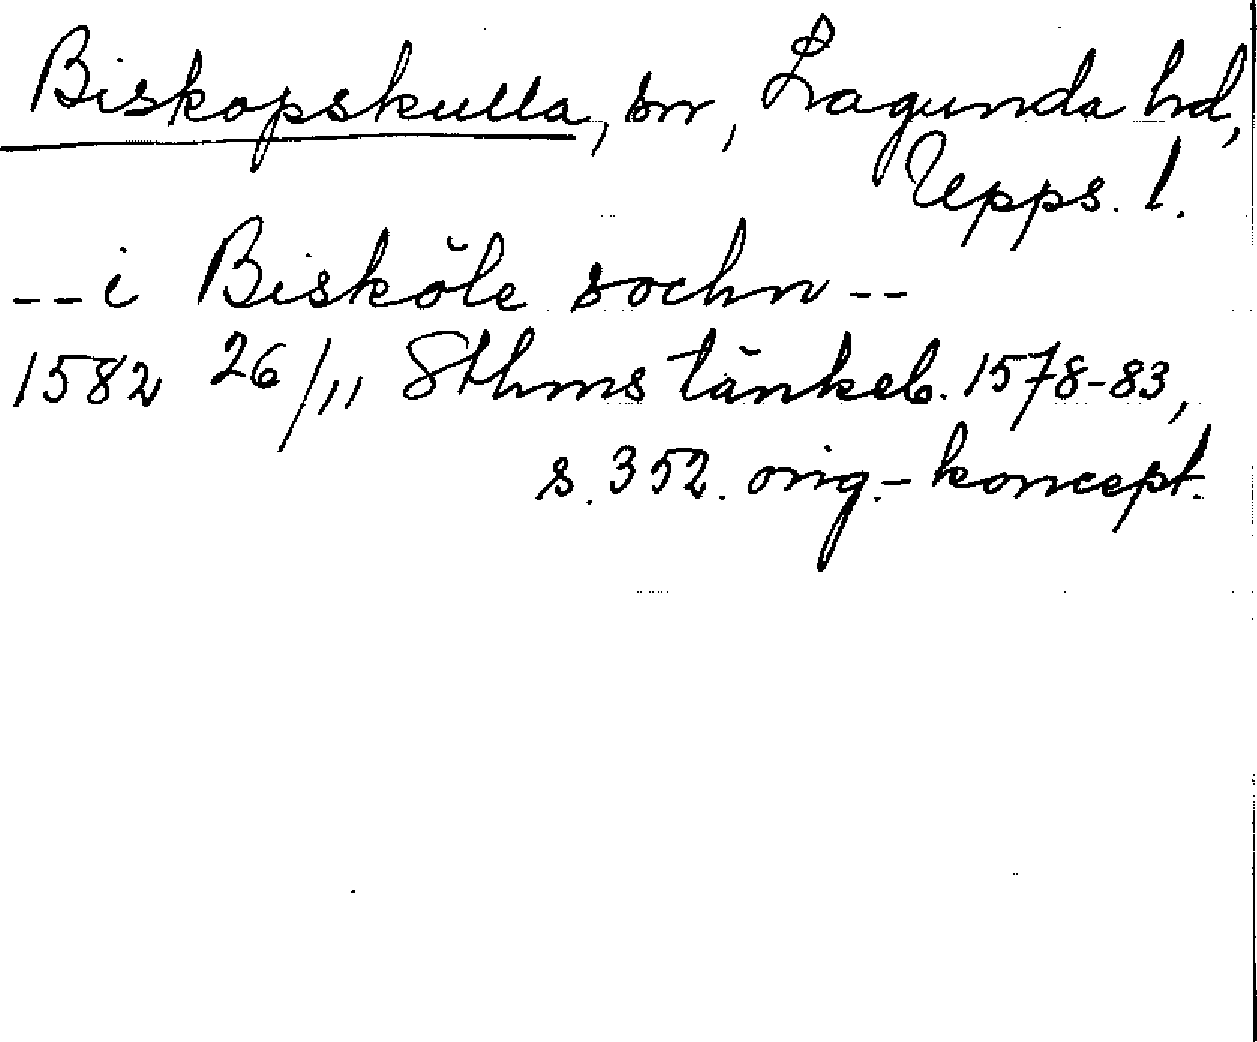 Biskopskulla, sn, Lagunda hd,
Upps. l.
-- i Bisköle sochn --
1582 26/11 Sthms tänkeb. 1578-83,
s. 352. orig.- koncept.